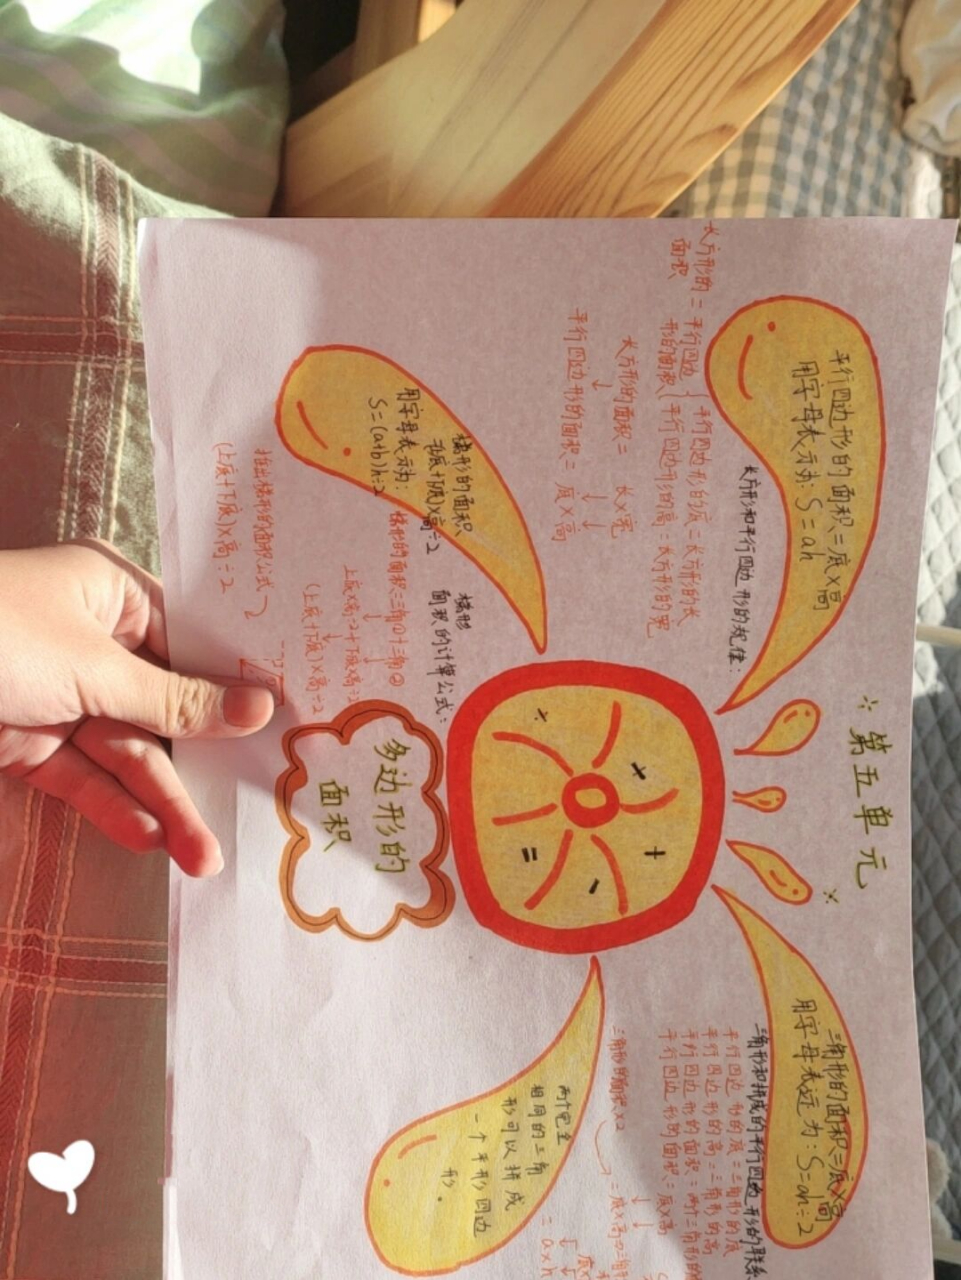 第五单元
平行四边形的面积=底×高
用字母表示为:S=ah
长方形和平行四边形的规律:
长方形的面积=平行四边形的面积
平行四边形的底=长方形的长
平行四边形的高=长方形的宽
长方形的面积=长×宽
平行四边形的面积=底×高
梯形的面积
(上底+下底)×高÷2
用字母表示为:
S=(a+b)h÷2
梯形
面积的计算公式:
梯形的面积=三角①+三角②
上底×高÷2+下底×高÷2
(上底+下底)×高÷2
推出梯形的面积公式
(上底+下底)×高÷2
多边形的
面积
三角形的面积=底×高
用字母表远为:S=ah÷2
三角形和拼成的平行四边形的联系
平行四边形的底=三角形的底
平行四边形的高=三角形的高
平行四边形的面积=两个三角形的
平行四边形的面积=底×高
三角形的面积×2
=底×高
两个完全
相同的三角
形可以拼成
一个平形四边
形。
=a×h